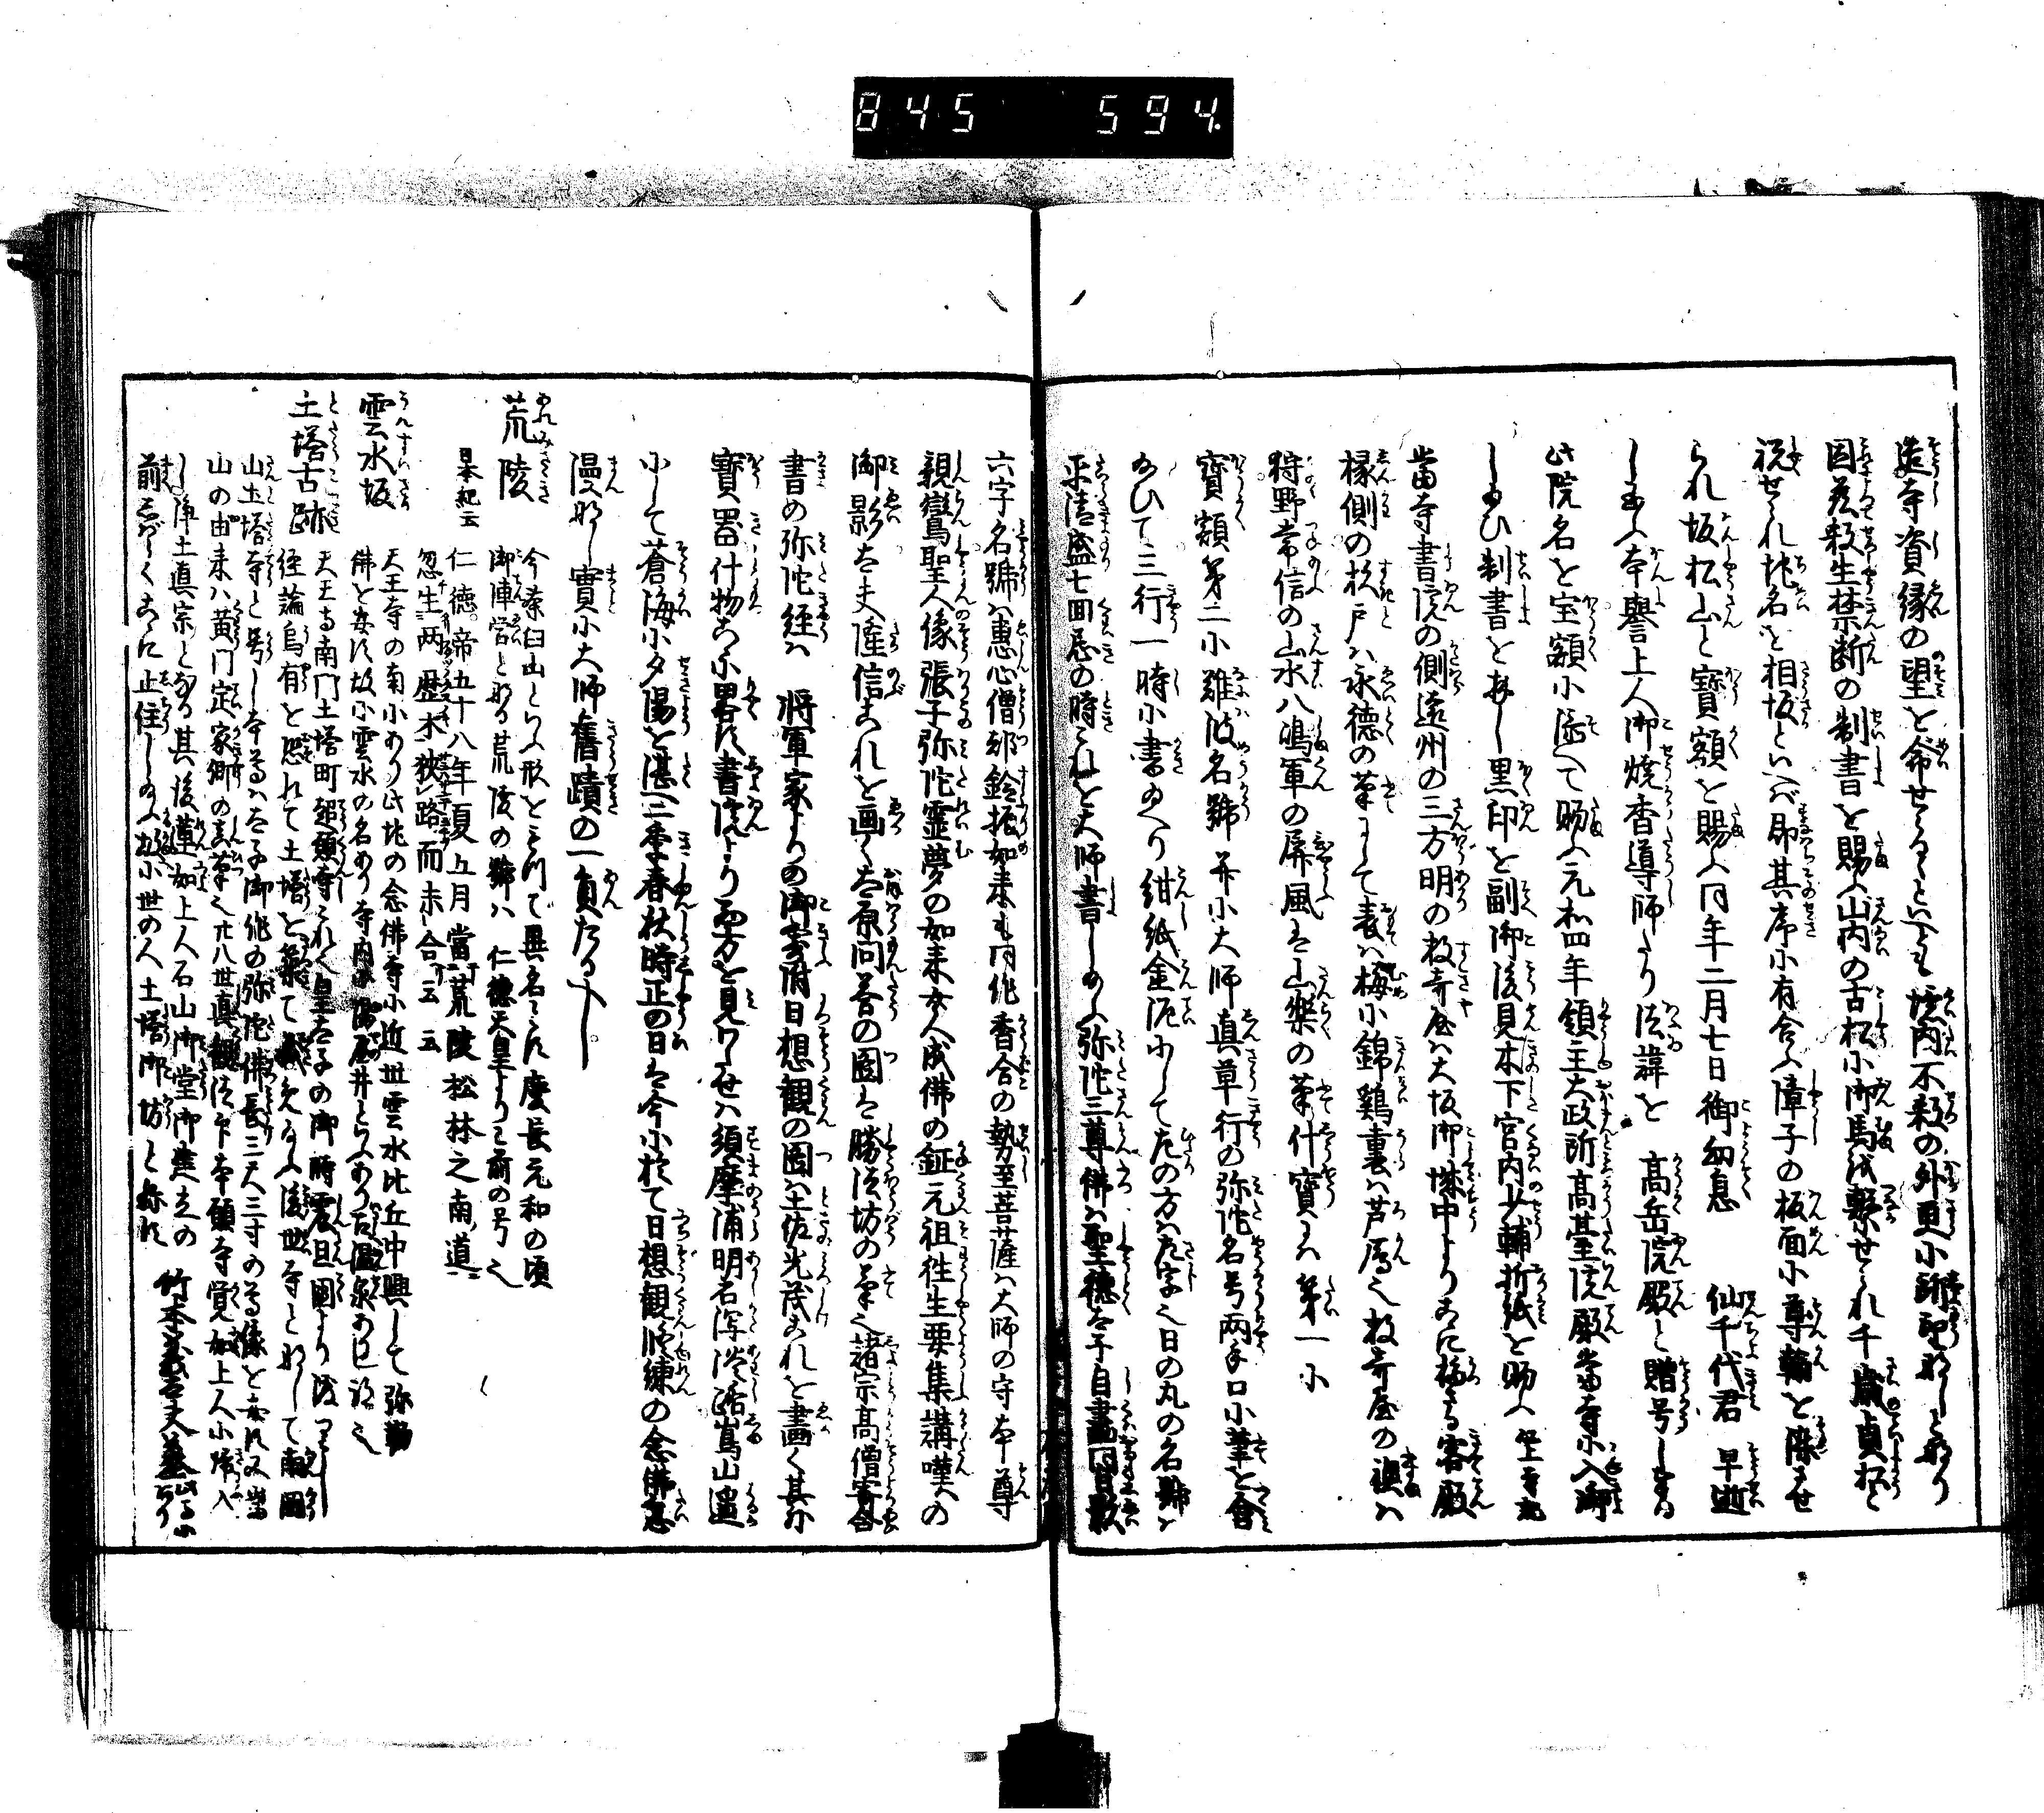 845 594.
造寺資縁の望と命せらるといへども境内不殺の外更に所望なしとなり
因茲殺生禁断の制書を賜ふ山内の古松に御馬を繋せられ千歳貞松と
祝せられ地名を相坂といへば即其序に有合ふ障子の板面に尊翰を染させ
られ坂松山と寶額を賜ふ同年二月七日御幼息 仙千代君 早逝
し玉ふ本譽上人御焼香導師たり法諱を 高岳院殿と贈号しまゐ
此院名を宝額に添へて賜ふ元和四年領主大政所高臺院殿當寺に入御
し玉ひ制書を出し黒印を副御後見木下宮内少輔折紙を賜ふ
當寺書院の側遠州の三方明の数寄屋ハ大坂御城中よりこゝに移る客殿
椽側の杉戸ハ永徳の筆にして表ハ梅に錦鷄裏ハ芦鴈也数寄屋の襖ハ
狩野常信の山水八鴻軍の屏風は山樂の筆什寶にハ第一に
寳額第二に難波名號并に大師真草行の弥陀名号両手口に筆を含
給ひて三行一時に書給へり紺紙金泥にして左の方ハ左字也日の丸の名號ハ
平清盛七回忌の時これを大師書し給ふ弥陀三尊佛ハ聖徳太子自畫同
六字名號ハ惠心僧都鈴振如来も同作香合の勢至菩薩ハ大師の守本尊
親鸞聖人像張子弥陀霊夢の如来女人成佛の鉦元祖徃生要集講嘆の
御影左京大夫隆信これを画く大原問答の圖は勝法坊の筆也諸宗高僧寄合
書の弥陀経ハ 将軍家よりの御寄附日想観の圖ハ土佐光茂これを畫く其外
寳器什物こゝに畧す書院より西方を見わたせハ須摩浦明石潟淡路嶌山遥
にして蒼海に夕陽を湛へ二季春秋時正の日は今に於て日想観修練の念佛怠
慢なし實に大師舊蹟の一員たるべし
荒陵 今茶臼山といふ形を以て異名とす慶長元和の頃
御陣営となる荒陵の號ハ 仁徳天皇より已前の号也
日本紀云 仁徳帝五十八年夏五月當荒陵松林之南道
忽生両歴木狭路而末合云云
雲水坂 天王寺の南にあり此地の念佛寺に近世雲水比丘中興して弥勒
佛を安す故に雲水の名あり寺内に
土塔古跡 天王寺南門土塔町超願寺これ也皇太子の御時震旦國より渡りし
経論烏有を恐れて土塔を築て蔵給ふ後世寺となして南岡
山土塔寺と号し本尊ハ太子御作の弥陀佛長三尺三寸の尊像を安す又當
山の由来ハ黄門定家卿の真筆也廿八世真観法印本願寺覚如上人に帰入
し浄土真宗となる其後蓮如上人石山御堂御建立の
前しばらくこゝに止住し給ふ故に世の人土塔御坊と称す 竹本義太夫墓此寺にあり